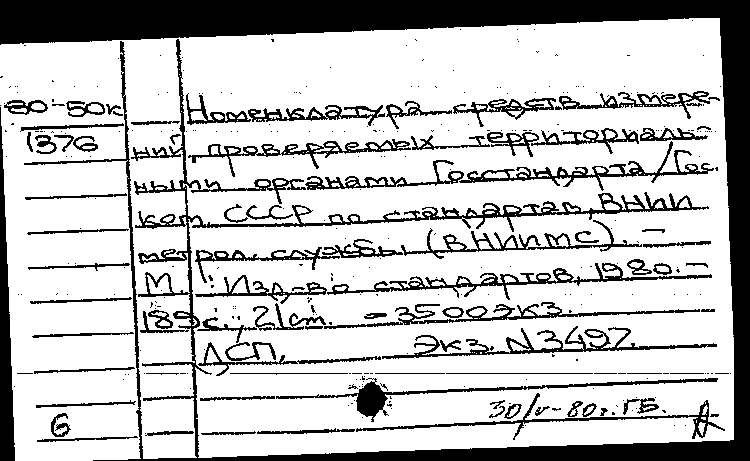 80-50к
1376
Номенклатура средств измере-
ний, проверяемых территориаль-
ными органами Госстандарта/Гос.
ком. СССР по стандартам, ВНИИ
метрол. службы (ВНИИМС). –
М.: Изд-во стандартов, 1980. –
189с.; 21см. – 3500экз.
ДСП. Экз. N3497.
6
30/V-80г. ГБ.